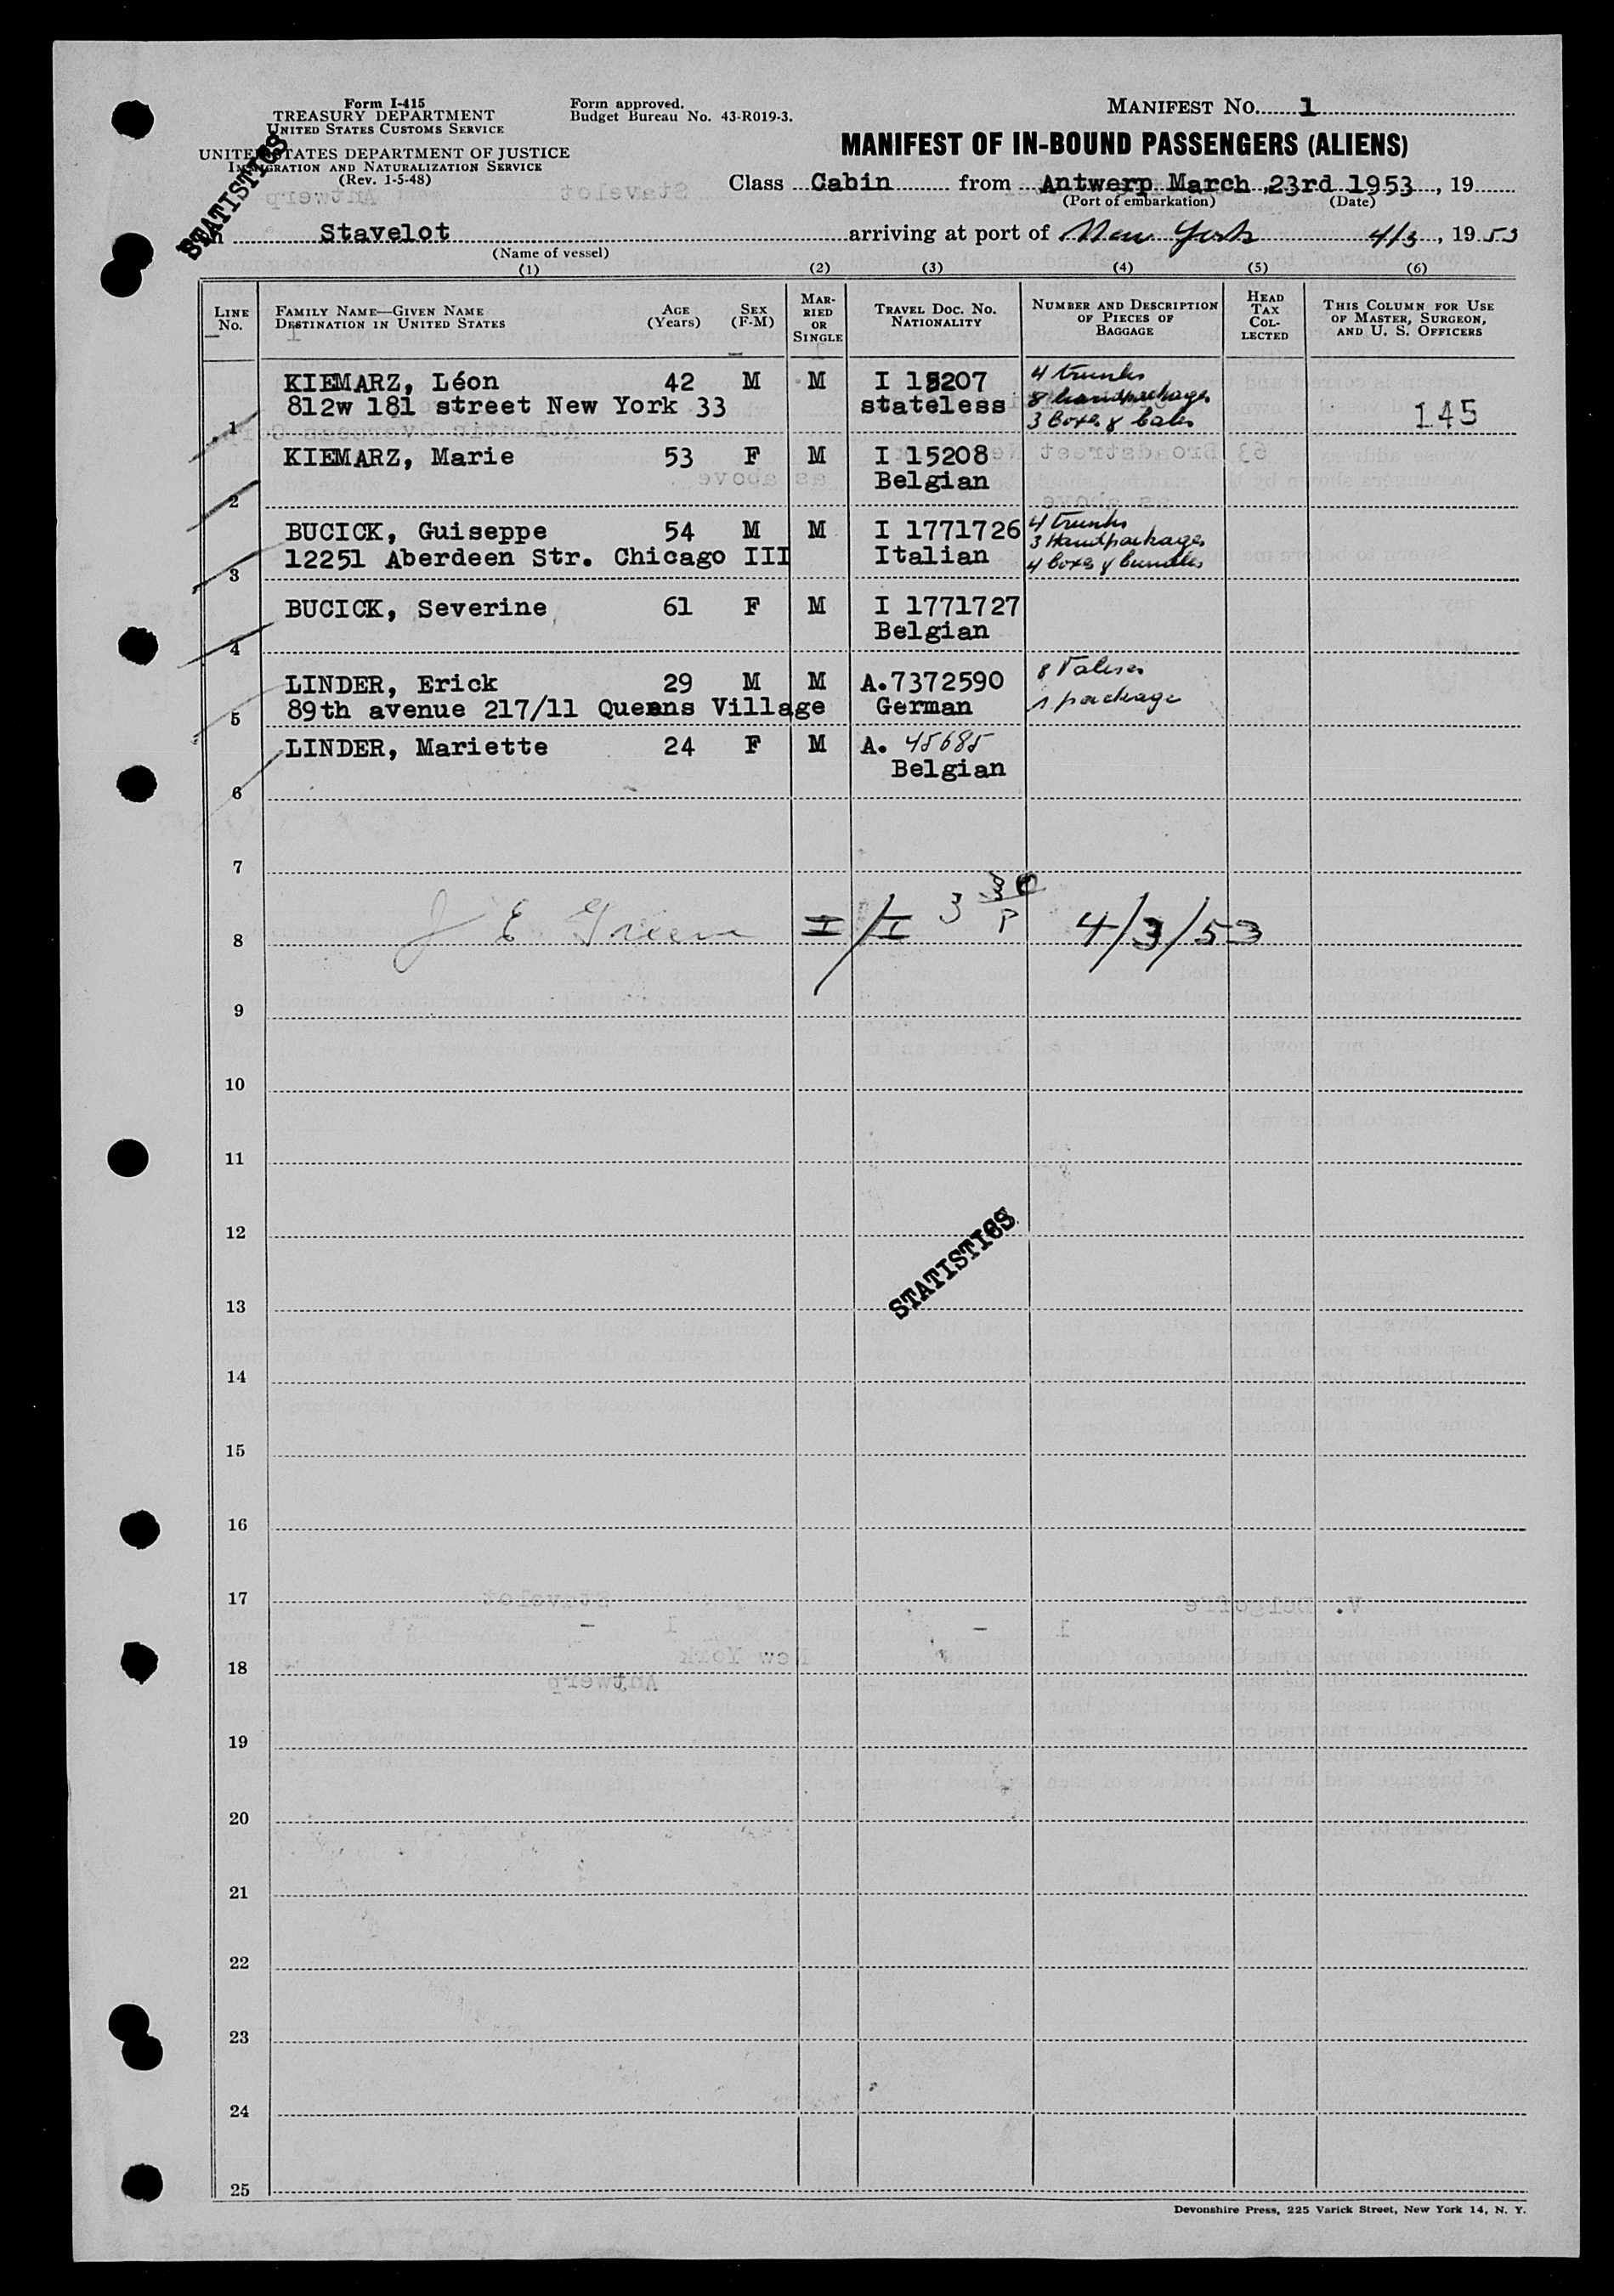 Form I-415
TREASURY DEPARTMENT
UNITED STATES CUSTOMS SERVICE
UNITED STATES DEPARTMENT OF JUSTICE
IMMIGRATION AND NATURALIZATION SERVICE
(Rev. 1-5-48)
STATISTICS
Form approved.
Budget Bureau No. 43-R019-3.
MANIFEST NO. 1
MANIFEST OF IN-BOUND PASSENGERS (ALIENS)
Class Cabin from Antwerp March 23rd 1953, 19
(Port of embarkation) (Date)
Stavelot arriving at port of New York 4/3, 1953
(Name of vessel)
(1) (2) (3) (4) (5) (6)
LINE NO.
FAMILY NAME—GIVEN NAME DESTINATION IN UNITED STATES
AGE (Years)
SEX (F-M)
MARRIED OR SINGLE
TRAVEL DOC. NO. NATIONALITY
NUMBER AND DESCRIPTION OF PIECES OF BAGGAGE
HEAD TAX COLLECTED
THIS COLUMN FOR USE OF MASTER, SURGEON, AND U. S. OFFICERS
KIEMARZ, Léon 42 M M I 15207 4 trunks
812w 181 street New York 33 stateless 8 handpackages
1 3 boxes & bales 145
KIEMARZ, Marie 53 F M I 15208
Belgian
2
BUCICK, Guiseppe 54 M M I 1771726 4 trunks
3 Handpackages
12251 Aberdeen Str. Chicago III Italian 4 boxes & bundles
3
BUCICK, Severine 61 F M I 1771727
Belgian
4
LINDER, Erick 29 M M A.7372590 8 Valises
89th avenue 217/11 Queens Village German 1 package
5
LINDER, Mariette 24 F M A. 45685
Belgian
6
7
J E Green I/I 3 30 P 4/3/53
8
9
10
11
12
STATISTICS
13
14
15
16
17
18
19
20
21
22
23
24
25
Devonshire Press, 225 Varick Street, New York 14, N. Y.